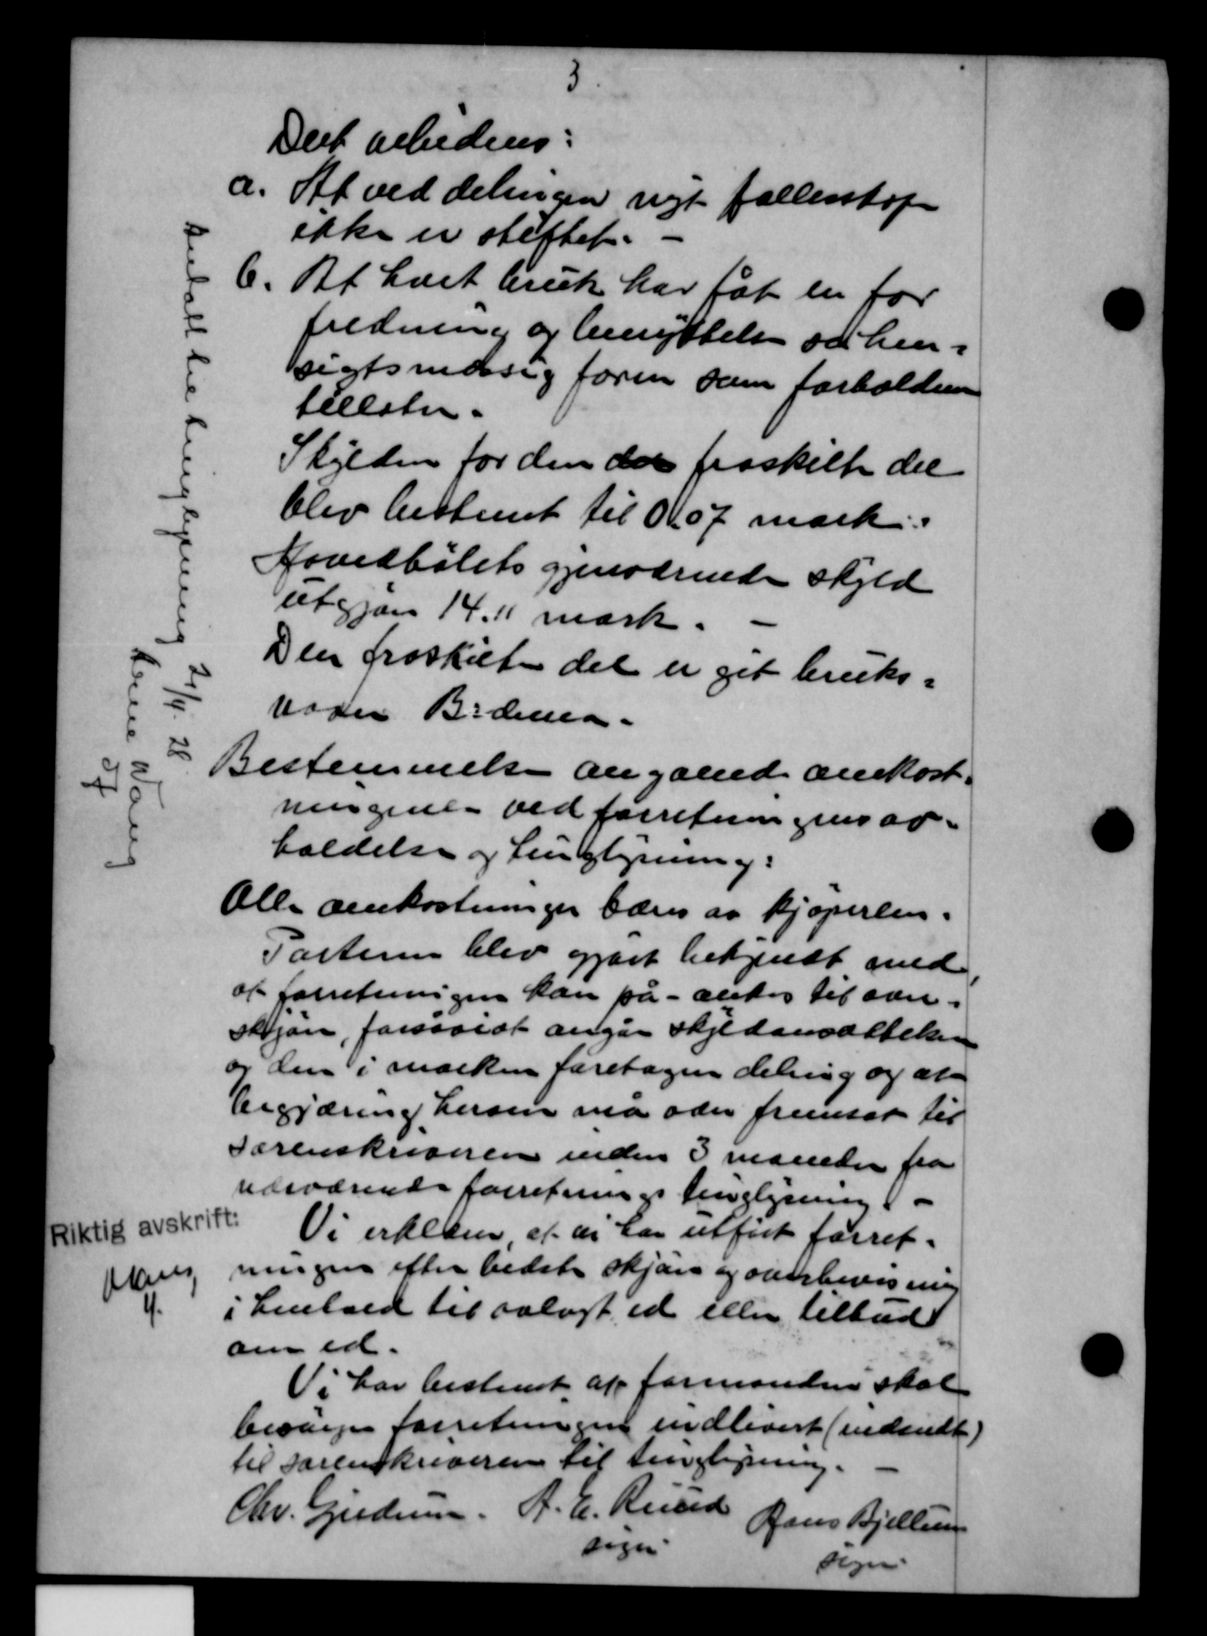 3.
Det avhedens:
a. At ved delingen nyt fællesskap
ikke er stiftet. –
b. At hvert bruk har fåt en for
fredning og benyttelse så hen-
sigtsmæssig form som forholdene
tillater.
Skylden for den fraskilte del
blev bestemt til 0.07 mark.
Hovedbølets gjenværende skyld
utgjør 14.11 mark. –
Den fraskilte del er git bruks-
navn
Bestemmelse angaaende omkost-
ningene ved forretningens av-
holdelse og tinglysning:
Alle omkostninger bæres av kjøperen.
Parterne blev gjort bekjendt med,
at forretningen kan på-ankes til over-
skjøn, forsåvidt angår skyldansættelsen
og den i marken foretagne deling og at
begjæring herom må være fremsat til
sorenskriveren inden 3 måneder fra
nærværende forretnings tinglysning. –
Vi erklærer, at vi har utført forret-
ningen efter bedste skjøn og overbevisning
i henhold til avlagt ed eller tilbud
om ed.
Vi har bestemt at formanden skal
besørge forretningen indlevert (indsendt)
til sorenskriveren til tinglysning. –
Chr. Gjedrum. A. E. Ruud Hans Bjellum
sign. sign.
Riktig avskrift:
Mottatt til tinglysning 21/4 28.